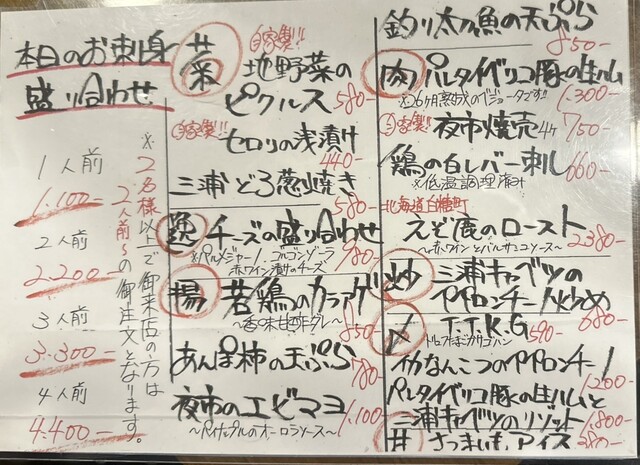 本日のお刺身
盛り合わせ
1人前
1.100-
2人前
2.200-
3人前
3.300-
4人前
4.400-
※2名様以上で御来店の方は
2人前〜の御注文となります。
菜
自家製!!
地野菜の
ピクルス 580-
自家製!!
セロリの浅漬け
440-
三浦どろ葱焼き
580-
逸 チーズの盛り合わせ
※パルメジャーノ、ゴルゴンゾーラ
赤ワイン漬けのチーズ
780-
揚 若鶏のカラアゲ
〜香味甘酢ダレ〜 850-
あんぽ柿の天ぷら
780-
夜市のエビマヨ
〜パイナップルのオーロラソース〜 1.100-
釣り太刀魚の天ぷら
850-
肉 パレタイベリコ豚の生ハム
※36ヶ月熟成のベジョータです!! 1.300-
自家製!! 夜市焼売 4ヶ 750-
鶏の白レバー刺し
※低温調理済け 660-
北海道白糠町
えぞ鹿のロースト
〜赤ワインとバルサミコソース〜 2.380-
炒 三浦キャベツの
ペペロンチーノ炒め
680-
〆 T.T.K.G 690-
トリュフたまごかけゴハン
イカなんこつのペペロンチーノ
1.200-
パレタイベリコ豚の生ハムと
三浦キャベツのリゾット
1.800-
甘 さつまいもアイス 380-